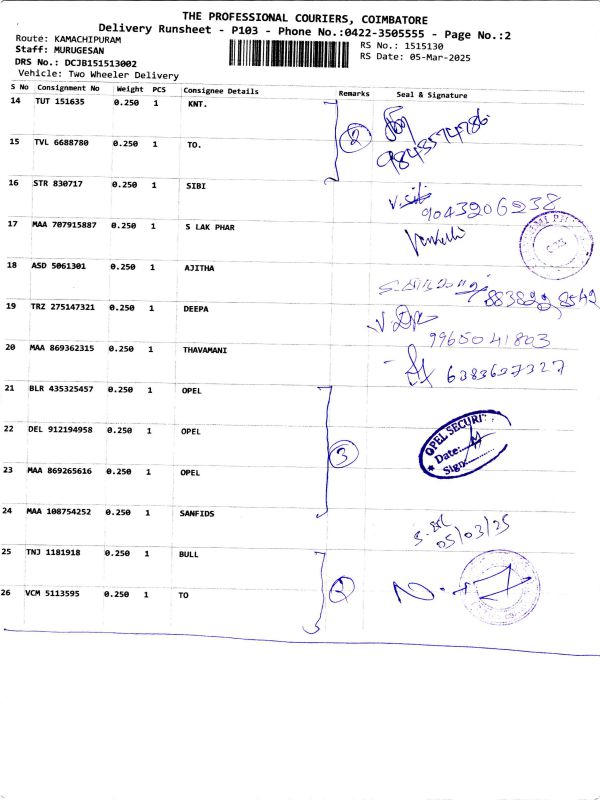 THE PROFESSIONAL COURIERS, COIMBATORE
Delivery Runsheet - P103 - Phone No.:0422-3505555 - Page No.:2
Route: KAMACHIPURAM
RS No.: 1515130
Staff: MURUGESAN
RS Date: 05-Mar-2025
DRS No.: DCJB151513002
Vehicle: Two Wheeler Delivery
S No Consignment No Weight PCS Consignee Details Remarks Seal & Signature
14 TUT 151635 0.250 1 KNT.
2
15 TVL 6688780 0.250 1 TO.
16 STR 830717 0.250 1 SIBI
9043206238
17 MAA 707915887 0.250 1 S LAK PHAR
18 ASD 5061301 0.250 1 AJITHA
19 TRZ 275147321 0.250 1 DEEPA
9965041803
20 MAA 869362315 0.250 1 THAVAMANI
21 BLR 435325457 0.250 1 OPEL
22 DEL 912194958 0.250 1 OPEL
OPEL SECURITY
Date:
Sign:
3
23 MAA 869265616 0.250 1 OPEL
24 MAA 108754252 0.250 1 SANFIDS
05/03/25
25 TNJ 1181918 0.250 1 BULL
2
26 VCM 5113595 0.250 1 TO